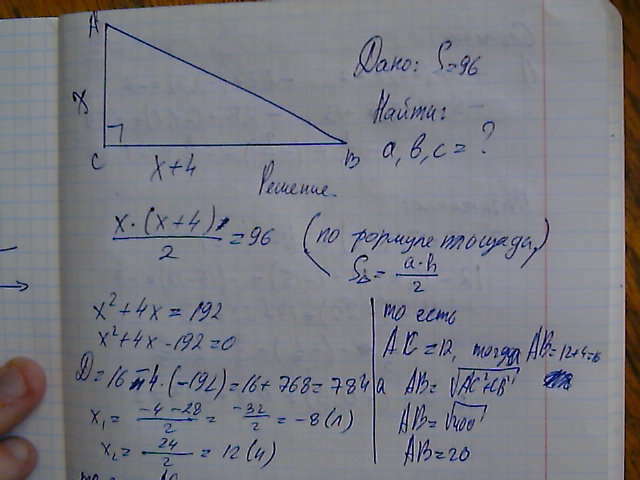 A
Дано: S=96
x
Найти:
a, b, c = ?
C
x+4
B
Решение.
x·(x+4)/2 = 96 (по формуле площади,
S△ = a·h/2)
x²+4x=192
x²+4x-192=0
D=16-4·(-192)=16+768=784
x₁= -4-28/2 = -32/2 = -8 (л)
x₂= 24/2 = 12 (и)
то есть
AC=12, тогда AB=12+4=16
а AB=√AC²+CB²
AB=√400
AB=20